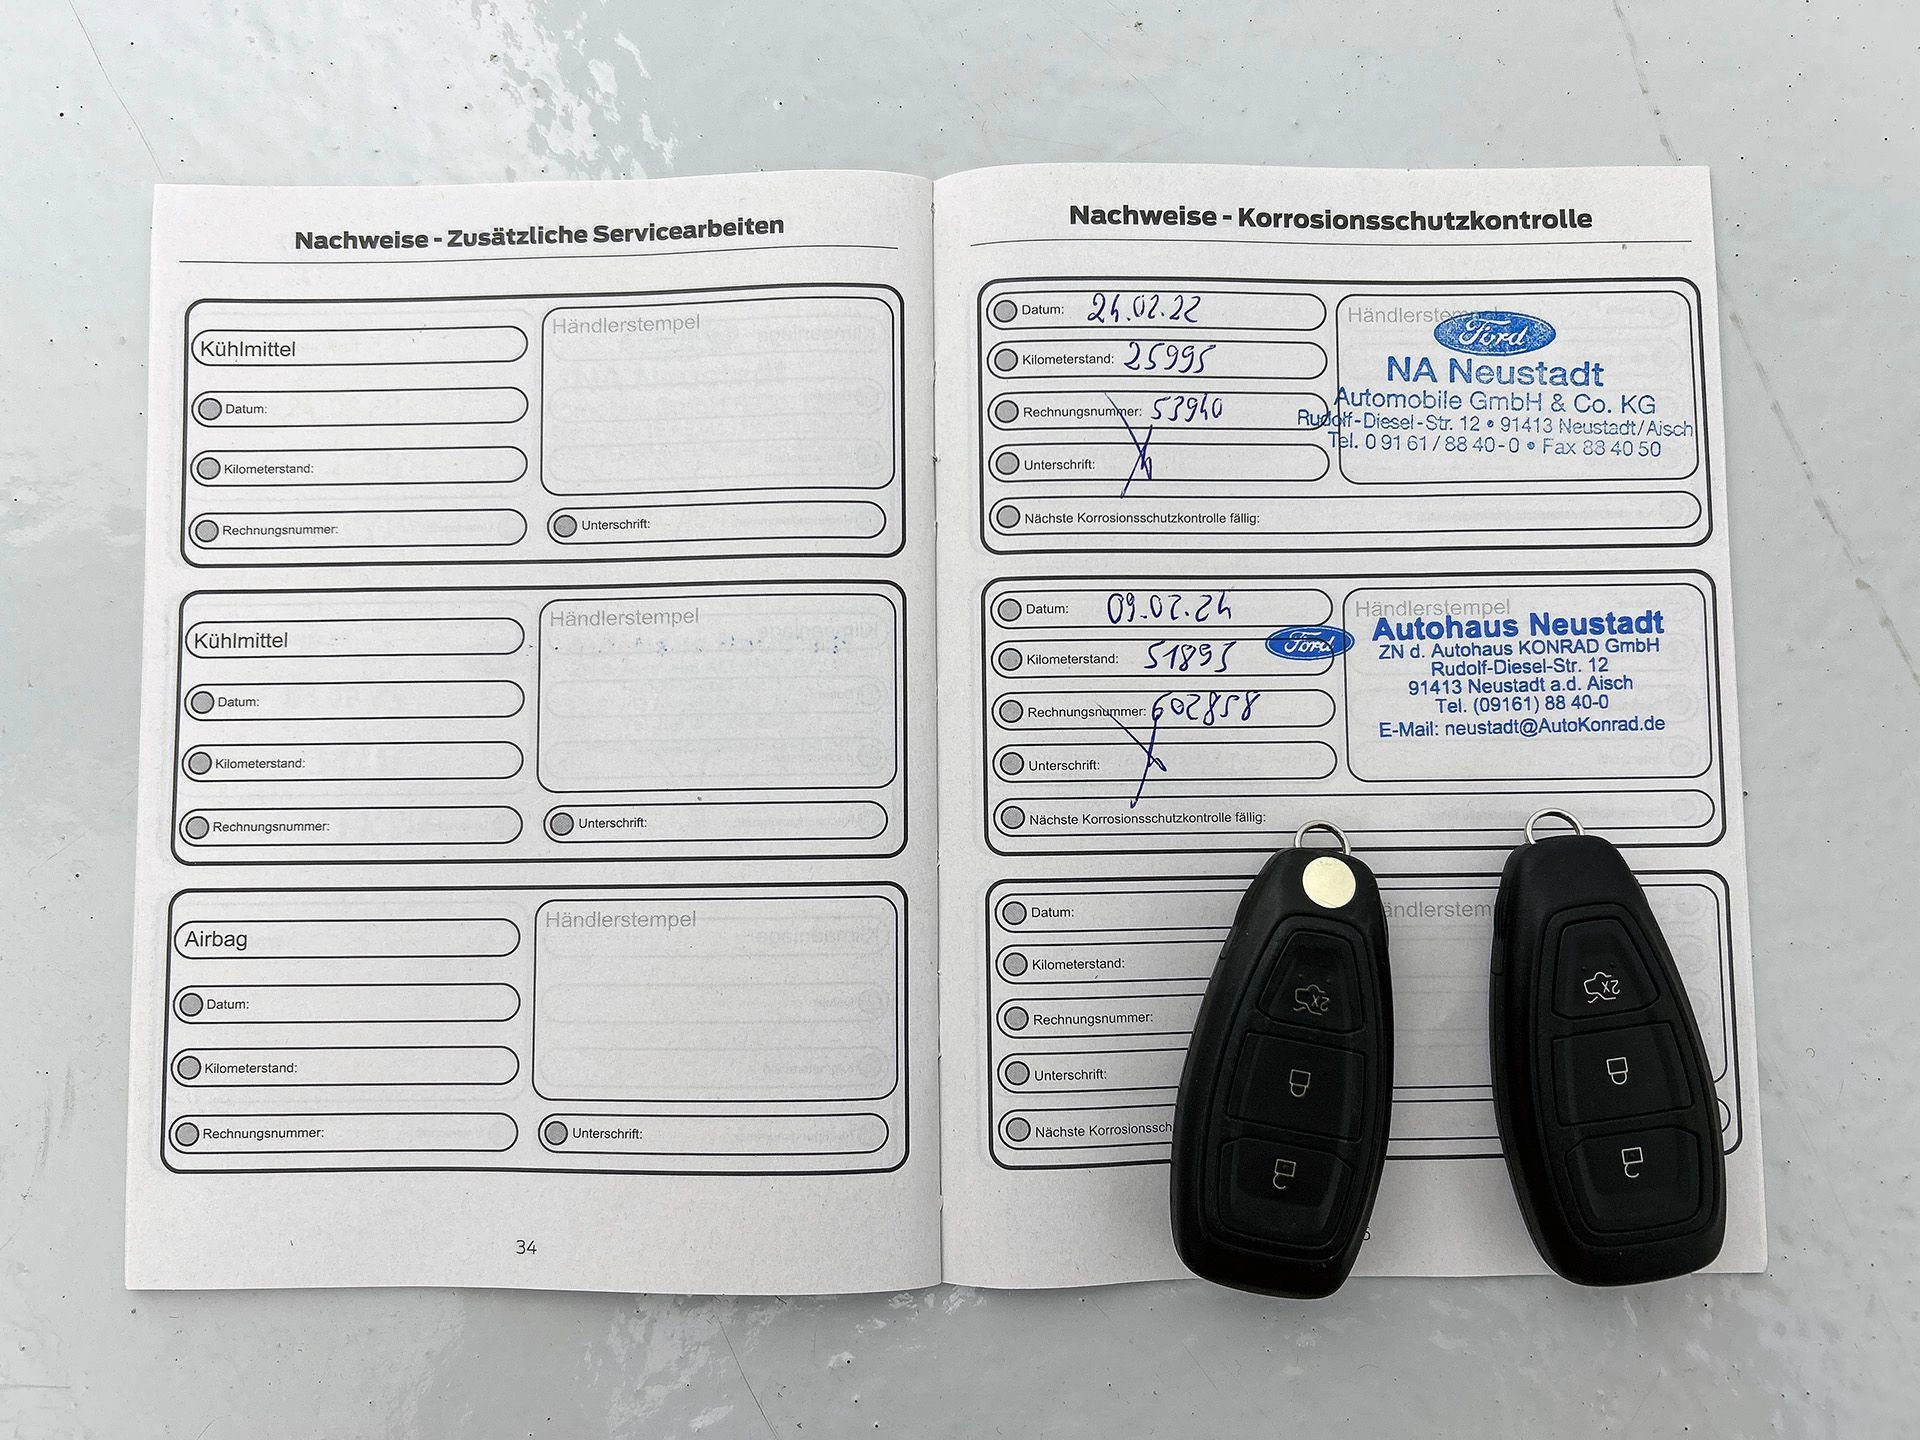 Nachweise - Zusätzliche Servicearbeiten
Kühlmittel
Datum:
Kilometerstand:
Rechnungsnummer:
Händlerstempel
Unterschrift:
Kühlmittel
Datum:
Kilometerstand:
Rechnungsnummer:
Händlerstempel
Unterschrift:
Airbag
Datum:
Kilometerstand:
Rechnungsnummer:
Händlerstempel
Unterschrift:
34
Nachweise - Korrosionsschutzkontrolle
Datum: 24.02.22
Kilometerstand: 25995
Rechnungsnummer: 53940
Unterschrift:
Nächste Korrosionsschutzkontrolle fällig:
Händlerstempel
Ford
NA Neustadt
Automobile GmbH & Co. KG
Rudolf-Diesel-Str. 12 • 91413 Neustadt/Aisch
Tel. 0 91 61 / 88 40-0 • Fax 88 40 50
Datum: 09.02.24
Kilometerstand: 51895
Rechnungsnummer: 602858
Unterschrift:
Nächste Korrosionsschutzkontrolle fällig:
Händlerstempel
Ford
Autohaus Neustadt
ZN d. Autohaus KONRAD GmbH
Rudolf-Diesel-Str. 12
91413 Neustadt a.d. Aisch
Tel. (09161) 88 40-0
E-Mail: neustadt@AutoKonrad.de
Datum:
Kilometerstand:
Rechnungsnummer:
Unterschrift:
Nächste Korrosionssch
ändlerstem
2x
2x